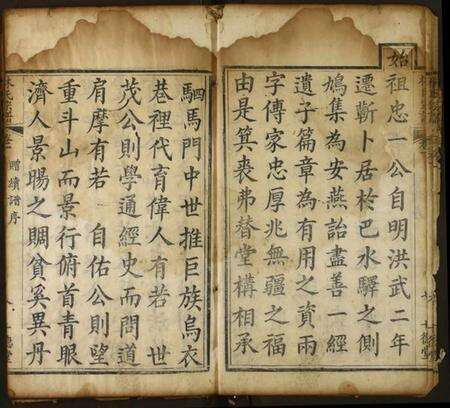 始
祖忠一公自明洪武二年
遷蘄卜居於巴水驛之側
鳩集為安燕詒盡善一經
遺子篇章為有用之資兩
字傳家忠厚兆無疆之福
由是箕裘弗替堂構相承
駟馬門中世推巨族烏衣
巷裡代育偉人有若 世
茂公則學通經史而問道
肩摩有若 自佑公則望
重斗山而景行俯首青眼
濟人景賜之賙貧奚異丹
贈續譜序